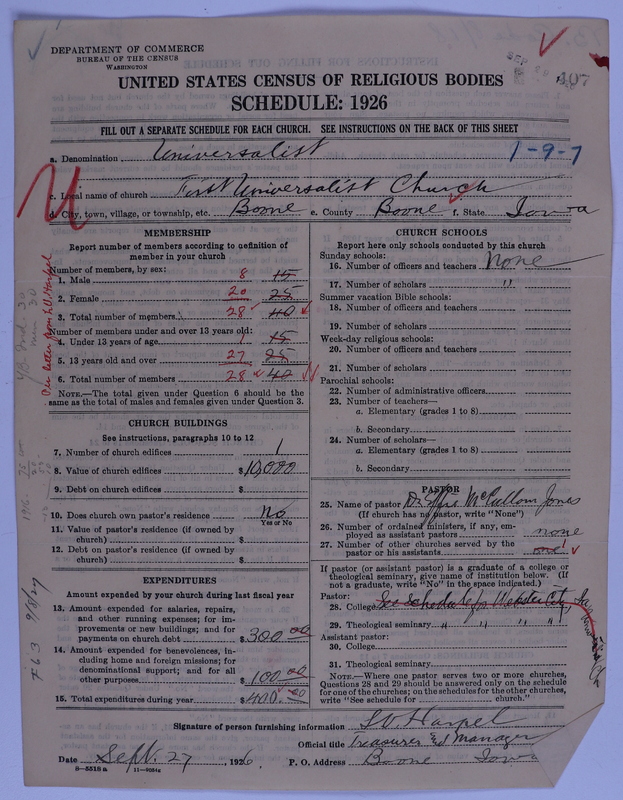 DEPARTMENT OF COMMERCE
BUREAU OF THE CENSUS
WASHINGTON
SEP
407
UNITED STATES CENSUS OF RELIGIOUS BODIES
SCHEDULE: 1926
FILL OUT A SEPARATE SCHEDULE FOR EACH CHURCH. SEE INSTRUCTIONS ON THE BACK OF THIS SHEET
a. Denomination Universalist 1-9-7
c. Local name of church First Universalist Church
d. City, town, village, or township, etc. Boone e. County Boone f. State Iowa
MEMBERSHIP
Report number of members according to definition of
member in your church
Number of members, by sex:
1. Male 8 15
2. Female 20 25
3. Total number of members 28 40
Number of members under and over 13 years old:
4. Under 13 years of age 1 15
5. 13 years old and over 27 25
6. Total number of members 28 40
NOTE.—The total given under Question 6 should be
same as the total of males and females given under Question 3.
CHURCH BUILDINGS
See instructions, paragraphs 10 to 12
7. Number of church edifices 1
8. Value of church edifices $10,000
9. Debt on church edifices $
10. Does church own pastor's residence? No
Yes or No
11. Value of pastor's residence (if owned by
church) $
12. Debt on pastor's residence (if owned by
church) $
EXPENDITURES
Amount expended by your church during last fiscal year
13. Amount expended for salaries, repairs,
and other running expenses; for im-
provements or new buildings; and for
payments on church debt $300.00
14. Amount expended for benevolences, in-
cluding home and foreign missions; for
denominational support; and for all
other purposes 100.00
15. Total expenditures during year $400.00
CHURCH SCHOOLS
Report here only schools conducted by this church
Sunday schools:
16. Number of officers and teachers None
17. Number of scholars "
Summer vacation Bible schools:
18. Number of officers and teachers
19. Number of scholars
Week-day religious schools:
20. Number of officers and teachers
21. Number of scholars
Parochial schools:
22. Number of administrative officers
23. Number of teachers—
a. Elementary (grades 1 to 8)
b. Secondary
24. Number of scholars—
a. Elementary (grades 1 to 8)
b. Secondary
PASTOR
25. Name of pastor Dr Effie McCollum Jones
(If church has no pastor, write "None")
26. Number of ordained ministers, if any, em-
ployed as assistant pastors none
27. Number of other churches served by the
pastor or his assistants one 1
If pastor (or assistant pastor) is a graduate of a college or
theological seminary, give name of institution below. (If
not a graduate, write "No" in the space indicated.)
Pastor:
28. College See schedule for Webster City,
29. Theological seminary " " " "
Assistant pastor:
30. College
31. Theological seminary
NOTE.—Where one pastor serves two or more churches,
Questions 28 and 29 should be answered only on the schedule
for one of the churches; on the schedules for the other churches,
write "See schedule for church."
Signature of person furnishing information S W Harpel
Official title Treasurer and Manager
Date Sept. 27, 1926 P. O. Address Boone Iowa
8—5518a 11—9034